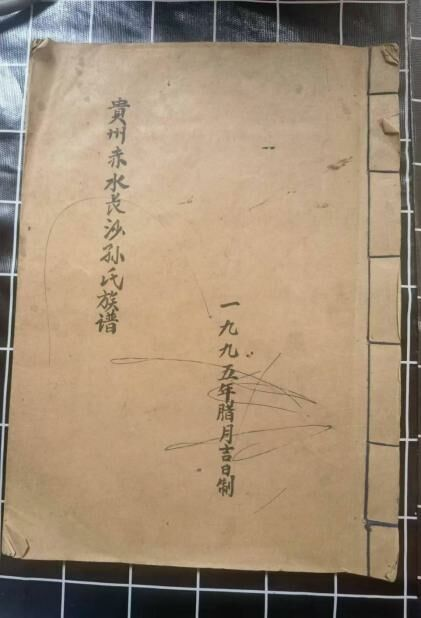 貴州赤水长沙孙氏族谱
一九九五年腊月吉日制